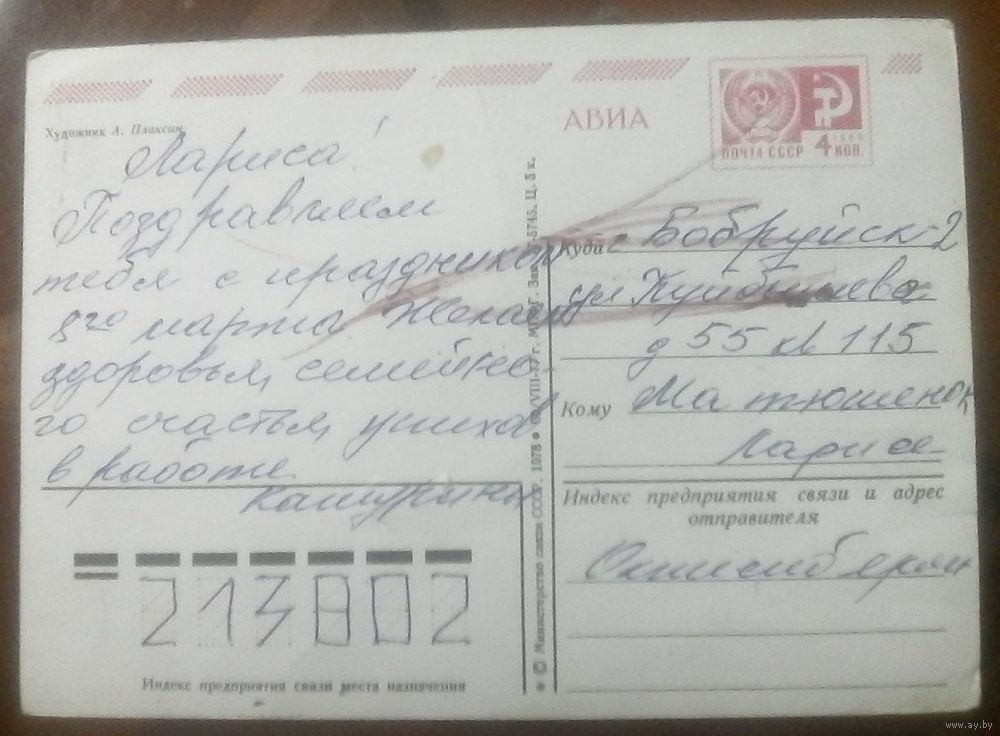 Художник А. Плаксин
Лариса!
Поздравляем
тебя с праздником
8го марта Желаем
здоровья, семейно-
го счастья, успехов
в работе
АВИА
ПОЧТА СССР 4 КОП.
1966
Куда г Бобруйск-2
ул Куйбышева
д 55 кв 115
Кому Матюшенок
Ларисе
Индекс предприятия связи и адрес
отправителя
213802
Индекс предприятия связи места назначения
© Министерство связи СССР. 1978
5745. Ц. 5 к.
www.ay.by